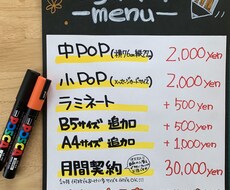 —menu—
中POP(横76cm縦52) 2,000yen
小POP 2,000yen
ラミネート +500yen
B5サイズ 追加 +500yen
A4サイズ 追加 +1,000yen
月間契約 30,000yen
POSCA